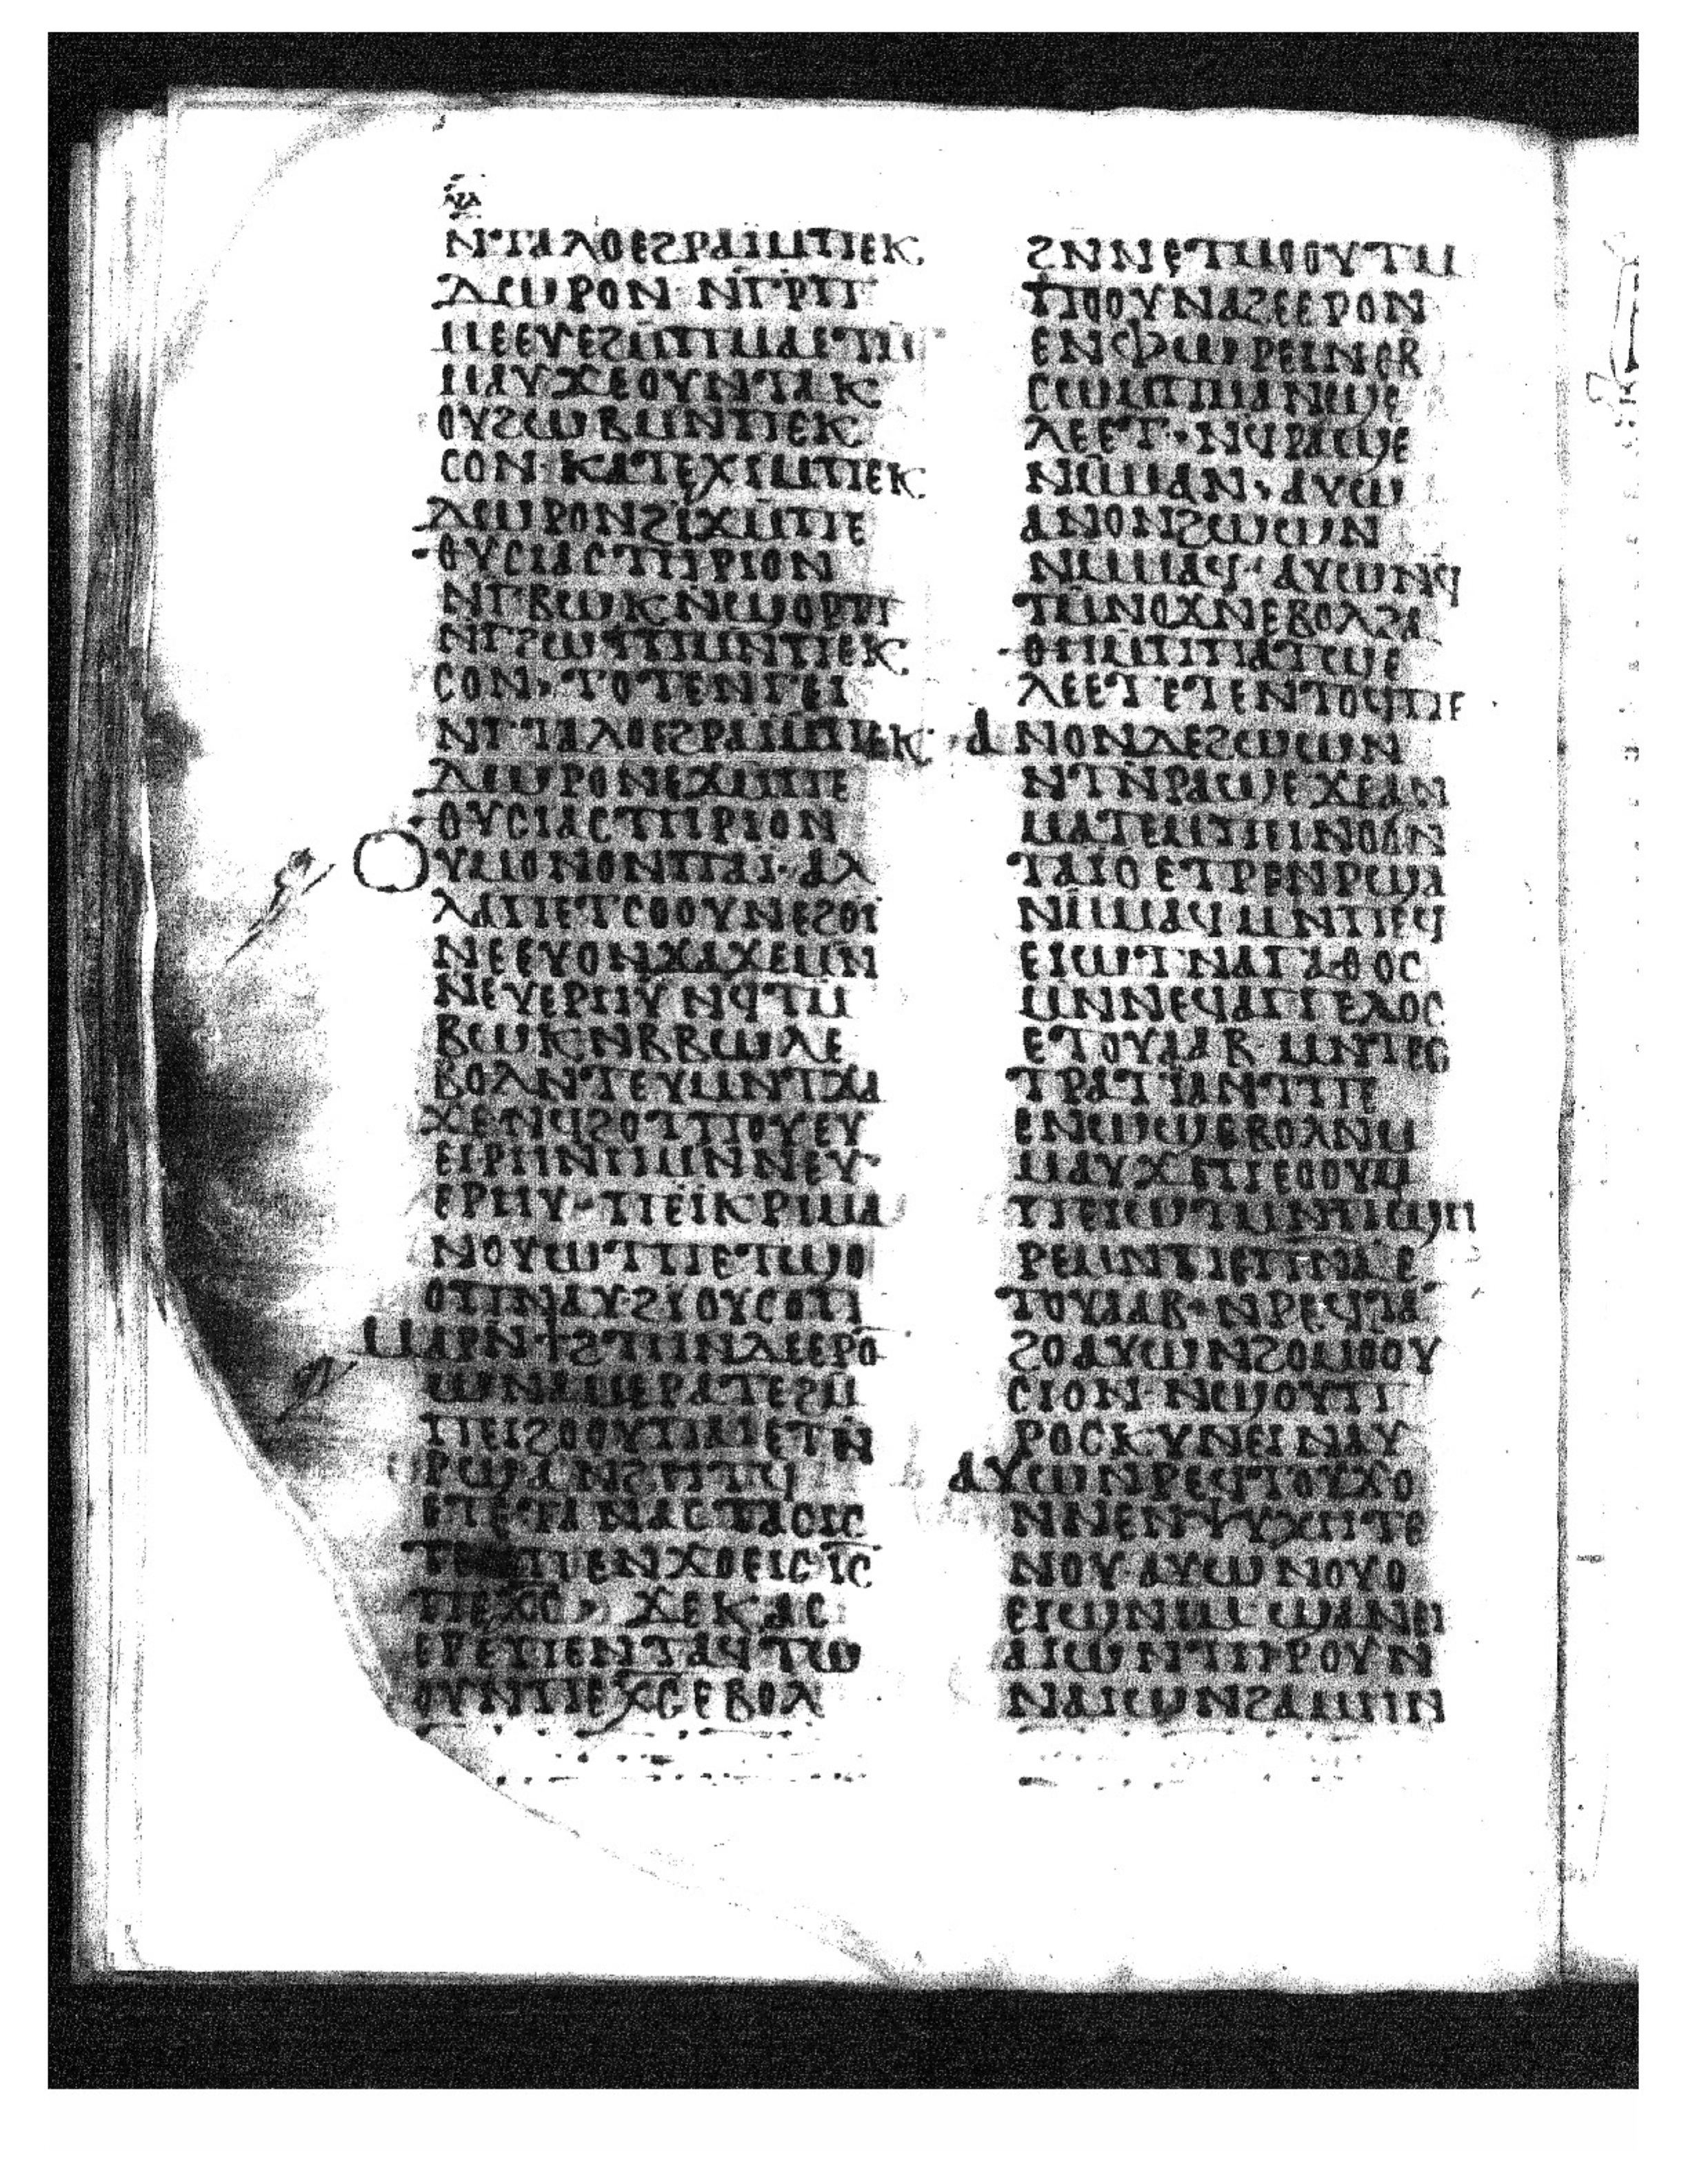 ⲛⲧⲁⲗⲟⲉϩⲣⲁⲓⲙⲡⲉⲕ
ⲇⲱⲣⲟⲛ ⲛⲅⲣⲡ
ⲙⲉⲉⲩⲉϩⲙⲡⲙⲁⲉⲧⲙ
ⲙⲁⲩϫⲉⲟⲩⲛⲧⲁⲕ
ⲟⲩϩⲱⲃⲙⲛⲡⲉⲕ
ⲥⲟⲛ· ⲕⲁⲧⲉⲭⲓⲙⲡⲉⲕ
ⲇⲱⲣⲟⲛϩⲓϫⲙⲡⲉ
ⲑⲩⲥⲓⲁⲥⲧⲏⲣⲓⲟⲛ
ⲛⲅⲃⲱⲕⲛϣⲟⲣⲡ
ⲛⲅϩⲱⲧⲡⲙⲛⲡⲉⲕ
ⲥⲟⲛ· ⲧⲟⲧⲉⲛⲅⲉⲓ
ⲛⲅⲧⲁⲗⲟⲉϩⲣⲁⲓⲙⲡⲉⲕ
ⲇⲱⲣⲟⲛⲉϫⲙⲡⲉ
ⲑⲩⲥⲓⲁⲥⲧⲏⲣⲓⲟⲛ
ⲟⲩⲙⲟⲛⲟⲛⲡⲁⲓ· ⲁⲗ
ⲗⲁⲡⲉⲧⲥⲟⲟⲩⲛⲉϩⲟⲓ
ⲛⲉⲉⲩⲟⲛϫⲁϫⲉⲙⲛ
ⲛⲉⲩⲉⲣⲏⲩ ⲛϥⲧⲙ
ⲃⲱⲕⲛⲃⲃⲱⲗⲉ
ⲃⲟⲗⲛⲧⲉⲩⲙⲛⲧϫⲁ
ϫⲉⲛϥϩⲟⲧⲡⲟⲩⲉⲩ
ⲉⲓⲣⲏⲛⲏⲙⲛⲛⲉⲩ
ⲉⲣⲏⲩ· ⲡⲉⲓⲕⲣⲓⲙⲁ
ⲛⲟⲩⲱⲧⲡⲉⲧϣⲟ
ⲟⲡⲛⲁⲩϩⲓⲟⲩⲥⲟⲡ
ⲙⲁⲣⲛϯϩⲧⲏⲛⲇⲉⲉⲣⲟ
ⲱⲛⲁⲙⲉⲣⲁⲧⲉϩⲙ
ⲡⲉⲓϩⲟⲟⲩⲡⲁⲓⲉⲧⲛ
ⲣϣⲁⲛϩⲏⲧϥ
ⲉⲧⲉⲧⲁⲛⲁⲥⲧⲁⲥⲓⲥ
ⲧⲉⲙⲡⲉⲛϫⲟⲉⲓⲥ ⲓⲥ
ⲡⲉⲭⲥ· ϫⲉⲕⲁⲥ
ⲉⲣⲉⲡⲉⲛⲧⲁϥⲧⲱ
ⲟⲩⲛⲡⲉⲭⲥⲉⲃⲟⲗ
ϩⲛⲛⲉⲧⲙⲟⲟⲩⲧⲙ
ⲡⲟⲟⲩⲛⲁϩⲉⲉⲣⲟⲛ
ⲉⲛⲫⲱⲣⲉⲓⲛⲉⲃ
ⲥⲱⲙⲡⲙⲁⲛϣⲉ
ⲗⲉⲉⲧ· ⲛϥⲣⲁϣⲉ
ⲛⲙⲙⲁⲛ· ⲁⲩⲱ
ⲁⲛⲟⲛϩⲱⲱⲛ
ⲛⲙⲙⲁϥ· ⲁⲩⲱⲛϥ
ⲧⲙⲛⲟϫⲛⲉⲃⲟⲗϩⲁ
ⲑⲏⲙⲡⲙⲁⲧϣⲉ
ⲗⲉⲉⲧⲉⲧⲉⲛⲧⲟϥⲡⲉ
ⲁⲛⲟⲛⲇⲉϩⲱⲱⲛ
ⲛⲧⲛⲣⲁϣⲉϫⲉⲁⲛ
ⲙⲁⲧⲉⲙⲡⲉⲓⲛⲟϭⲛ
ⲧⲁⲓⲟⲉⲧⲣⲉⲛⲣϣⲁ
ⲛⲙⲙⲁϥⲙⲛⲡⲉϥ
ⲉⲓⲱⲧⲛⲁⲅⲁⲑⲟⲥ
ⲙⲛⲛⲉϥⲁⲅⲅⲉⲗⲟⲥ
ⲉⲧⲟⲩⲁⲁⲃ· ⲙⲛⲧⲉϥ
ⲧⲣⲁⲡⲁⲛⲧⲡⲉ
ⲉⲛⲱϣⲉⲃⲟⲗⲛⲙ
ⲙⲁⲩϫⲉⲡⲉⲟⲟⲩⲙ
ⲡⲉⲓⲱⲧⲙⲛⲡϣⲏ
ⲣⲉⲙⲛⲡⲉⲡⲛⲁⲉ
ⲧⲟⲩⲁⲁⲃ· ⲛⲣⲉϥⲧⲁ
ϩⲟⲁⲩⲱⲛϩⲟⲙⲟⲟⲩ
ⲥⲓⲟⲛ· ⲛϣⲟⲩⲡ
ⲣⲟⲥⲕⲩⲛⲉⲓⲛⲁⲩ
ⲁⲩⲱⲛⲣⲉϥⲧⲟⲩϫⲟ
ⲛⲛⲉⲛⲯⲩⲭⲏⲧⲉ
ⲛⲟⲩ·ⲁⲩⲱⲛⲟⲩⲟ
ⲉⲓϣⲛⲓⲙ ϣⲁⲛⲉⲓ
ⲁⲓⲱⲛⲧⲏⲣⲟⲩⲛ
ⲛⲁⲓⲱⲛϩⲁⲙⲏⲛ